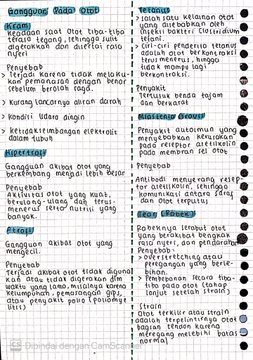 Gangguan Pada Otot
Kram
Keadaan saat otot tiba-tiba
terasa tegang, sehingga sulit
digerakkan dan disertai rasa
nyeri
Penyebab
> Terjadi karena tidak melaku-
kan pemanasan dengan benar
sebelum berolah raga.
> kurang lancarnya aliran darah
> Kondisi udara dingin
> ketidakseimbangan elektrolit
dalam tubuh
Hipertrofi
Gangguan akibat otot yang
berkembang menjadi lebih besar
Penyebab
Aktivitas otot yang kuat,
berulang-ulang dan terus-
menerus serta nutrisi yang
banyak.
Atrofi
Gangguan akibat otot yang
mengecil.
Penyebab
Terjadi akibat otot tidak diguna
kan atau tidak digerakkan dlm
waktu yang lama, misalnya karena
kelumpuhan, pemasangan gips,
atau penyakit polio (poliomye
litis)
Tetanus
> Salah satu kelainan otot
yang disebabkan oleh
infeksi bakteri Clostridium
tetani.
> Ciri-ciri penderita tetanus
adalah otot berkontraksi
terus menerus, hingga
tidak mampu lagi
berkontraksi.
Penyakit
Tertusuk benda tajam
dan berkarat
Miastenia Gravis
Penyakit autoimun yang
menyebabkan kerusakan
pada reseptor asetilkolin
pada membran sel otot
Penyebab
Antibodi menyerang resep
tor asetilkolin, sehingga
komunikasi antara saraf
dan otot terputus
Robeknya serabut otot
yang berakibat bengkak
rasa nyeri, dan pendarahan
Penyebab
> overstretching atau
peregangan yang berle-
bihan.
> Pembebanan secara tiba-
tiba pada otot (tahap
lanjut setelah strain)
Strain
Otot terkilir atau strain
adalah terpelintirnya otot
bagian tendon karena
meregang melebihi batas
normal
Dipindai dengan CamScanner